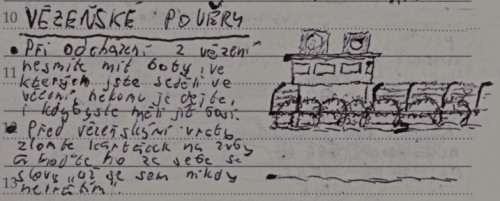 10
VĚZEŇSKÉ POVĚRY
• Při odcházení z vězení
nesmíte mít boty, ve
11
kterých jste seděli ve
vězení, někomu je dejte,
i kdybyste měli jít bosi.
• Před vězeňskými vraty
zlomte kartáček na zuby
a hoďte ho za sebe se
slovy „už se sem nikdy
13
nevrátím".